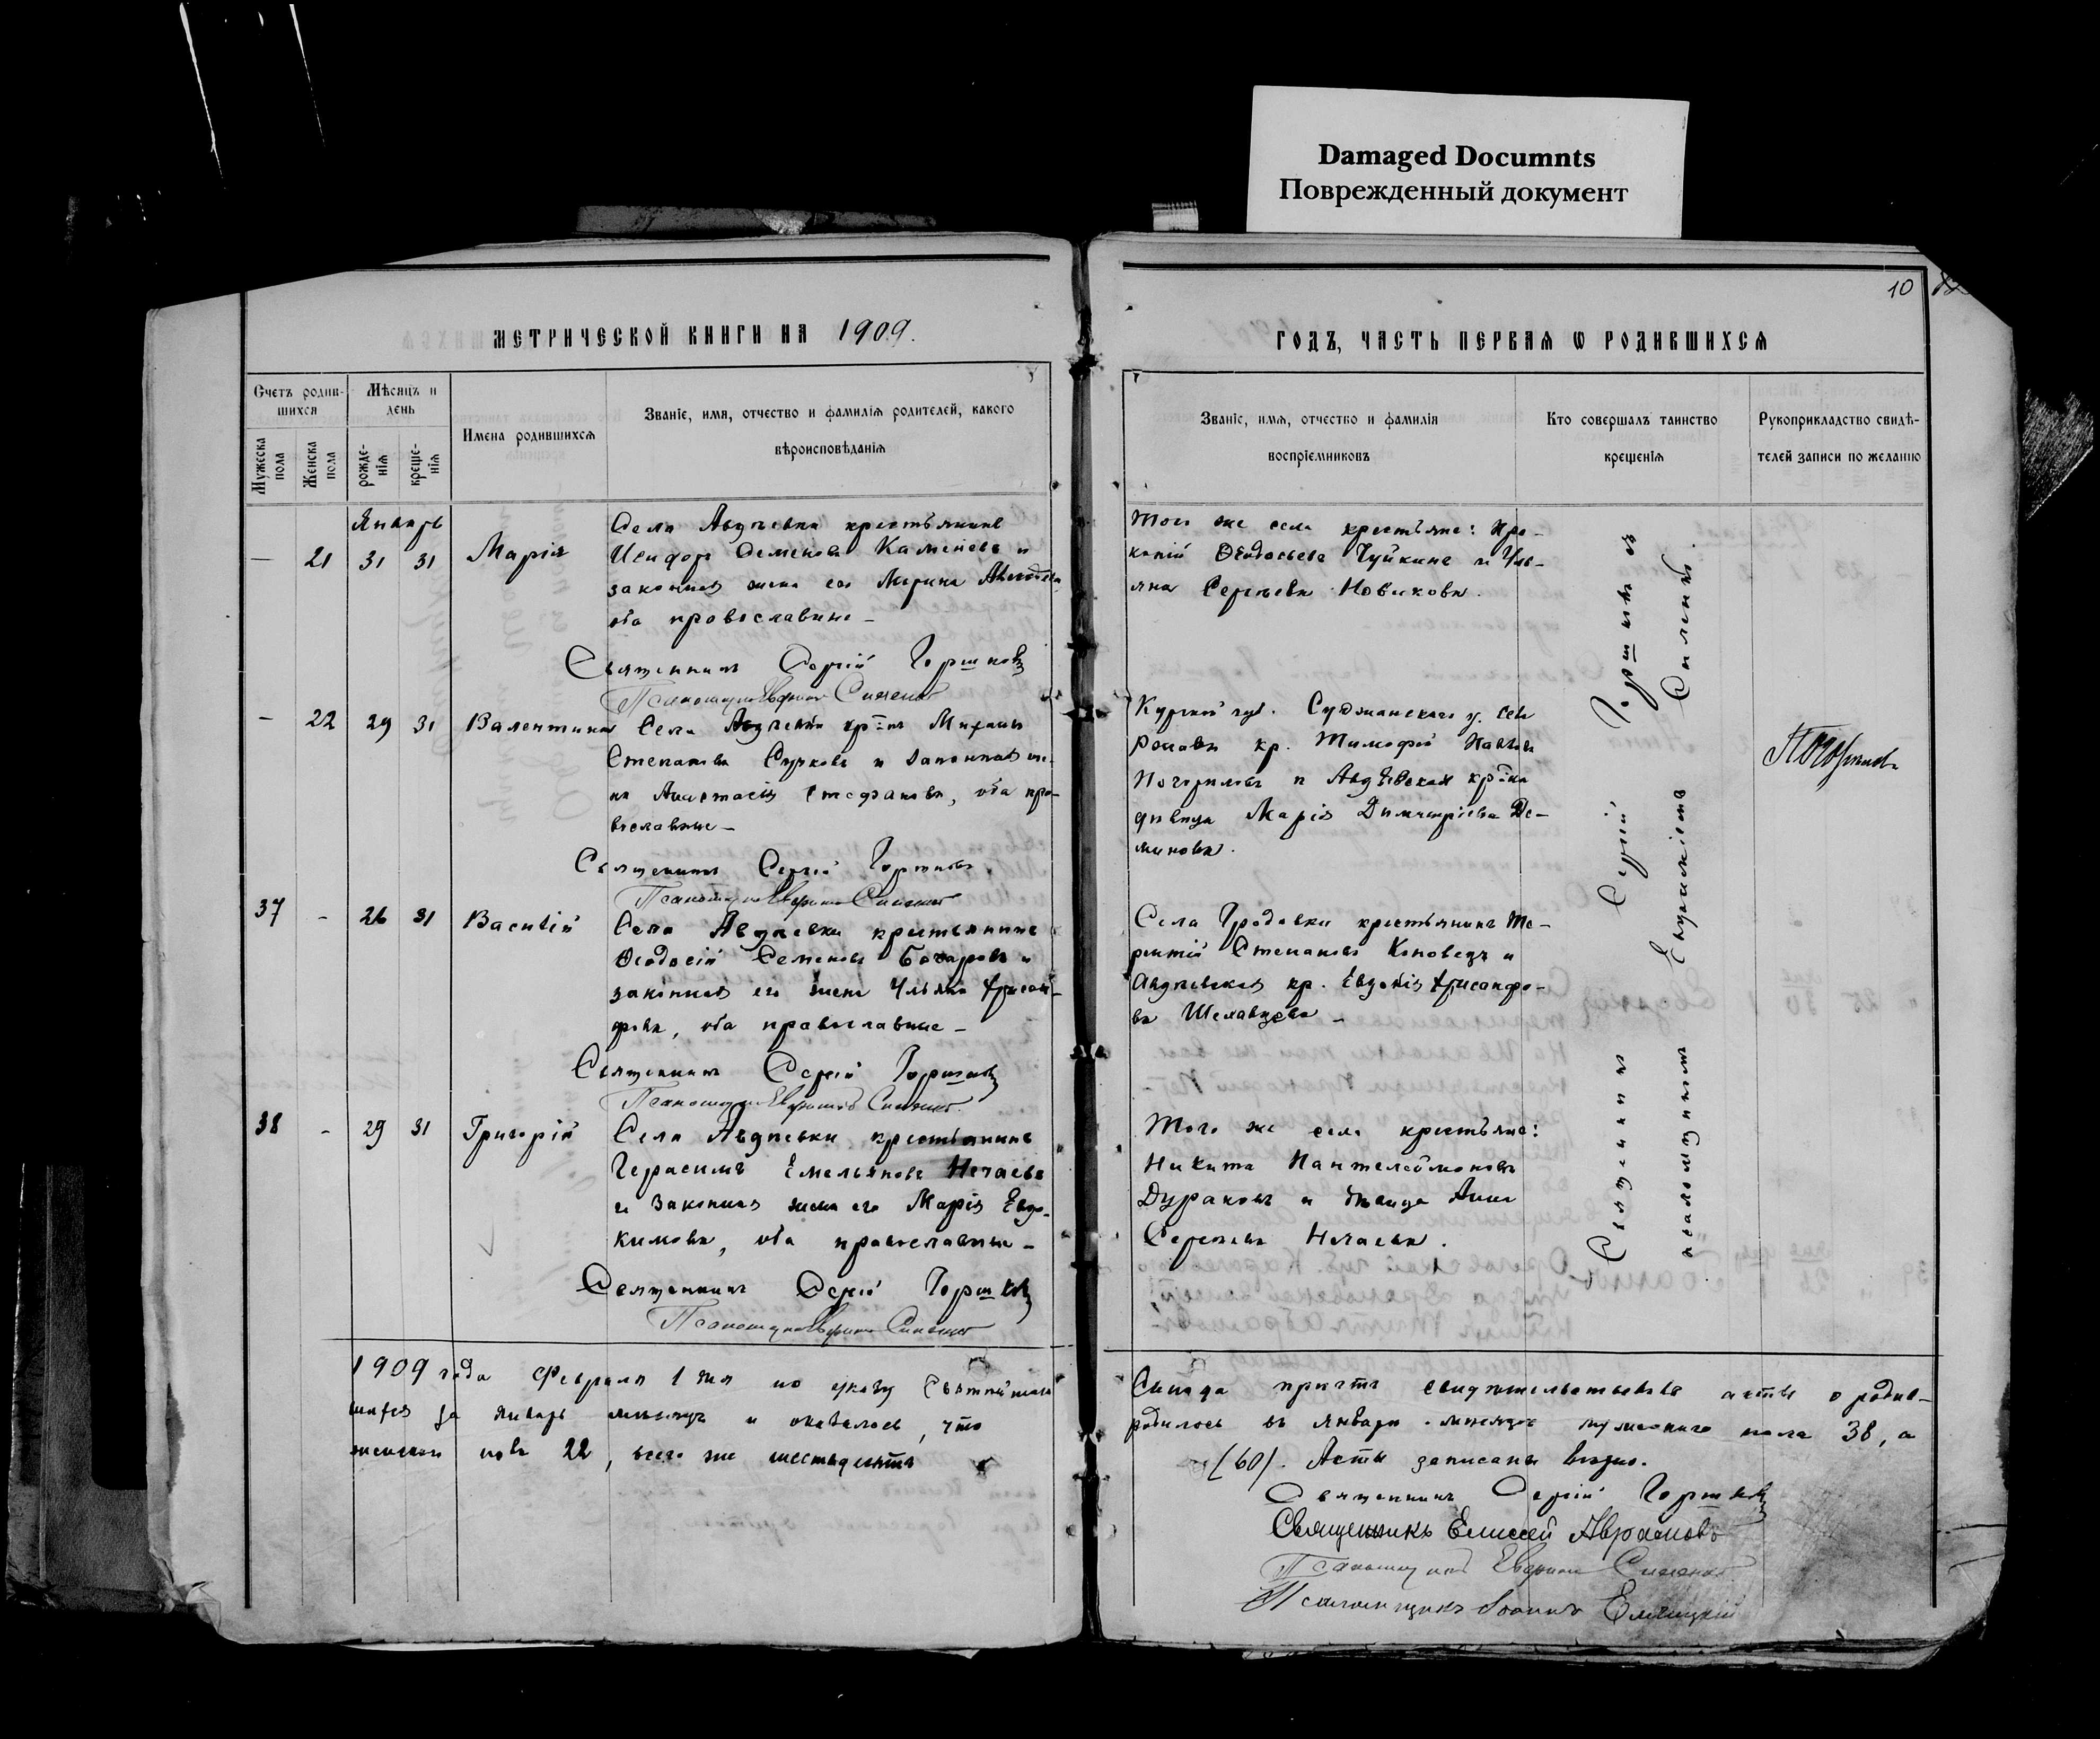 Damaged Documnts
Поврежденный документ
10
МЕТРИЧЕСКОЙ КНИГИ НА 1909.
Счетъ родив-
шихся
Мѣсяцъ и
день
Мужеска
пола
Женска
пола
рожде-
нія
креще-
нія
Имена родившихся
Званіе, имя, отчество и фамилія родителей, какого
вѣроисповѣданія
Январь
— 21 31 31 Марія
Села Авдѣевки крестьянинъ
Исидоръ Семеновъ Каменевъ и
законная жена его Марина
оба православные —
Священникъ Сергій Горшковъ
Псаломщикъ
— 22 29 31 Валентина
Села Авдѣевки кр-нъ Михаилъ
Степановъ Сурковъ и законная же-
на Анастасія Стефанова, оба пра-
вославные —
Священникъ Сергій Горшковъ
Псаломщикъ
37 - 26 31 Василій
Села Авдѣевки крестьянинъ
Ѳеодосій Семеновъ Бочаровъ и
законная его жена Ульяна Хрисан-
фова, оба православные —
Священникъ Сергій Горшковъ
Псаломщикъ
38 - 29 31 Григорій
Села Авдѣевки крестьянинъ
Герасимъ Емельяновъ Нечаевъ
и законная жена его Марія Евдо-
кимова, оба православные —
Священникъ Сергій Горшковъ
Псаломщикъ
1909 года Февраля 1 дня по указу Святѣйшаго
шихся за Январь мѣсяцъ и оказалось, что
женскаго пола 22, всего же шестьдесятъ
ГОДЪ, ЧАСТЬ ПЕРВАЯ Ѡ РОДИВШИХСЯ
Званіе, имя, отчество и фамилія
воспріемниковъ
Кто совершалъ таинство
крещенія
Рукоприкладство свидѣ-
телей записи по желанію
Того же села крестьяне: Про-
копій Ѳеодосьевъ Чуйкинъ и Уль-
яна Сергѣева Новикова.
Курской губ. Суджанскаго у. села
кр. Тимофей Павловъ
и Авдѣевская кр-нка
дѣвица Марія Димитріева Де-
минова.
Села Гродовки крестьянинъ Те-
рентій Степановъ Коноведъ и
Авдѣевская кр. Евдокія Хрисанфо-
ва Шелавцева —
Того же села крестьяне:
Никита Пантелеймоновъ
Дураковъ и дѣвица Анна
Сергѣева Нечаева.
Священникъ Сергій Горшковъ съ
псаломщикомъ
Синода причтъ свидѣтельствовалъ акты о родив-
родилось въ Январѣ мѣсяцѣ мужескаго пола 38, а
(60). Акты записаны вѣрно.
Священникъ Сергій Горшковъ
Священникъ Елисей Авраамовъ
Псаломщикъ
Псаломщикъ Іоаннъ